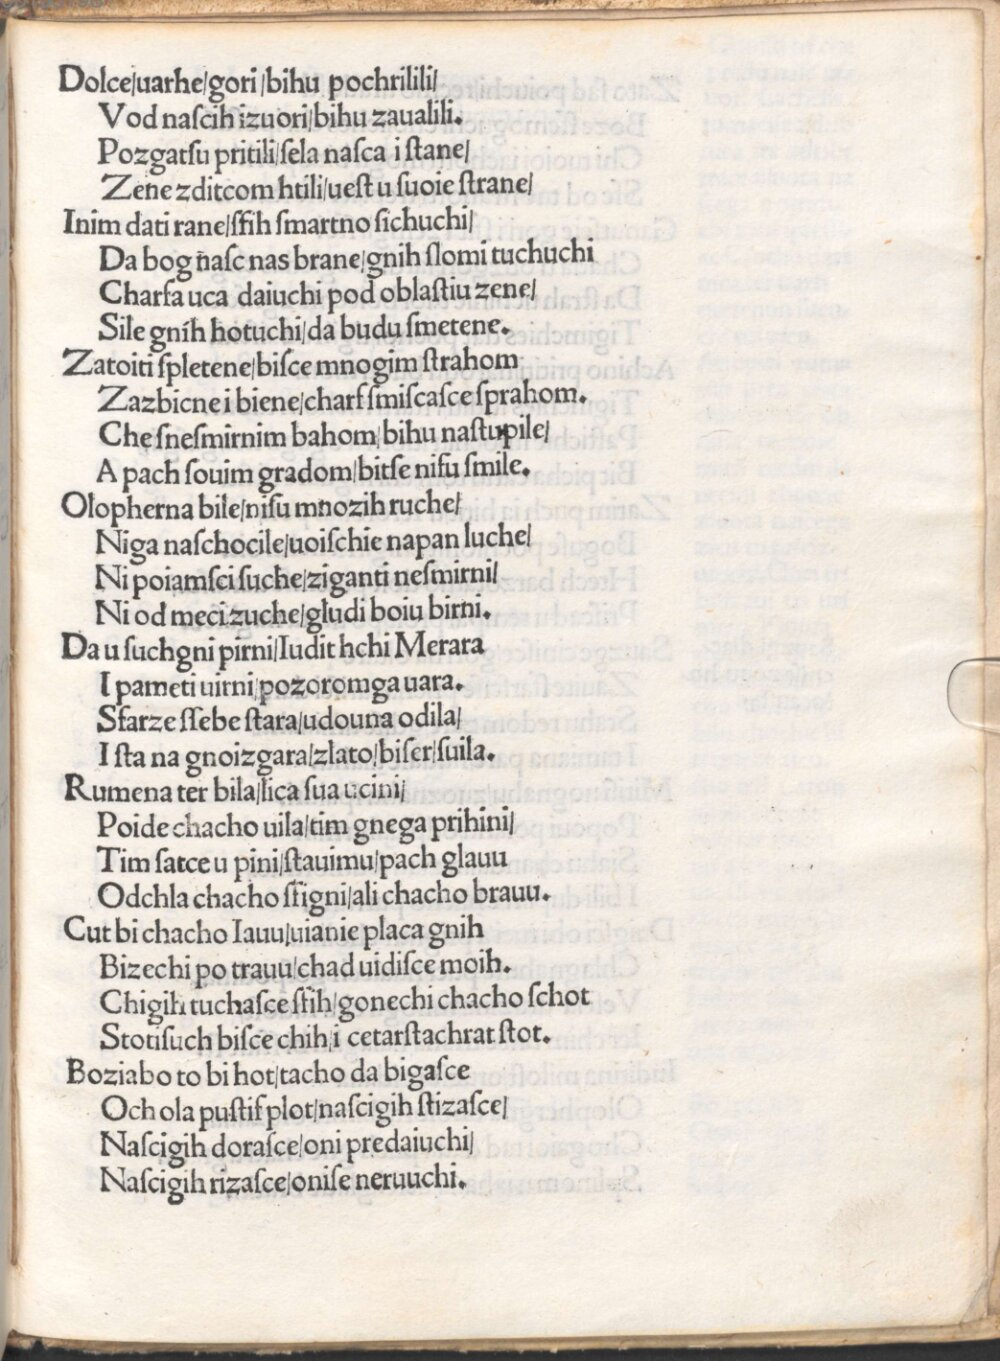 Dolce/uarhe/gori/bihu pochrilili/
Vod naſcih izuori/bihu zaualili.
Pozgatſu pritili/ſela naſca i ſtane/
Zene zditcom htili/ueſt u ſuoie ſtrane/
Inim dati rane/ſſih ſmartno ſichuchi/
Da bog naſc nas brane/gnih ſlomi tuchuchi
Charſa uca daiuchi pod oblaſtiu zene/
Sile gnih hotuchi/da budu ſmetene.
Zatoiti ſpletene/biſce mnogim ſtrahom
Zazbicne i biene/charſ ſmiſcaſce ſprahom.
Che ſneſmirnim bahom/bihu naſtupile/
A pach ſouim gradom/bitſe niſu ſmile.
Olopherna bile/niſu mnozih ruche/
Niga naſchocile/uoiſchie napan luche/
Ni poiamſci ſuche/ziganti neſmirni/
Ni od meci zuche/gludi boiu birni.
Da u ſuchgni pirni/Iudit hchi Merara
I pameti uirni/pozoromga uara.
Sfarze ſſebe ſtara/udouna odila/
I ſta na gnoizgara/zlato/biſer/ſuila.
Rumena ter bila/lica ſua ucini/
Poide chacho uila/tim gnega prihini/
Tim ſatce u pini/ſtauimu/pach glauu
Odchla chacho ſſigni/ali chacho brauu.
Cut bi chacho Iauu/uianie placa gnih
Bizechi po trauu/chad uidiſce moih.
Chigih tuchaſce ſſih/gonechi chacho ſchot
Stotiſuch biſce chih/i cetarſtachrat ſtot.
Boziabo to bi hot/tacho da bigaſce
Och ola puſtiſ plot/naſcigih ſtizaſce/
Naſcigih doraſce/oni predaiuchi/
Naſcigih rizaſce/oniſe neruuchi.